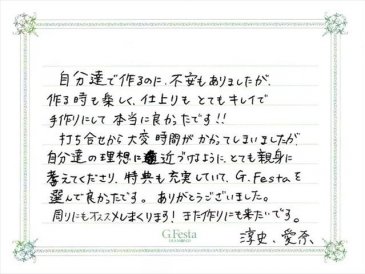 自分達で作るのに、不安もありましたが、
作る時も楽しく、仕上りもとてもキレイで
手作りにして本当に良かったです!!
打ち合せから大変時間がかかってしまいましたが、
自分達の理想に近づけるように、とても親身に
考えてくださり、特典も充実していて、G.Festaを
選んで良かったです。ありがとうございました。
周りにもオススメしまくります! また作りにも来たいです。
G.Festa
淳史、愛奈